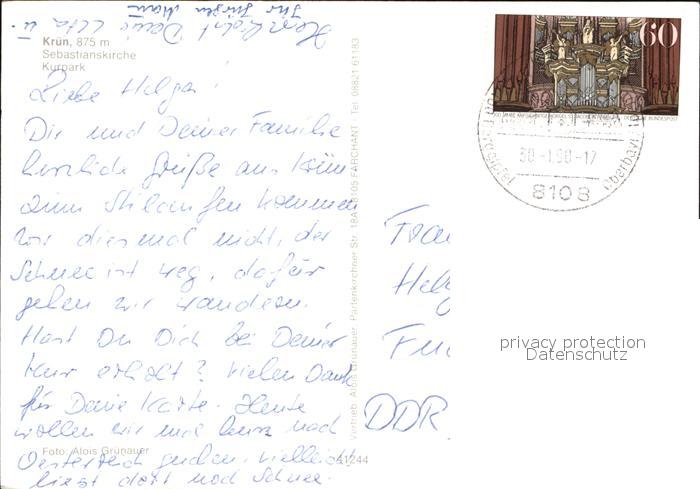 Krün, 875 m
Sebastianskirche
Kurpark
Liebe Helga!
Dir und Deiner Familie
herzliche Grüße aus Krün
zum Skilaufen kommen
wir diesmal nicht, der
Schnee ist weg, dafür
gehen wir wandern.
Hast Du Dich bei Deiner
Kur erholt? Vielen Dank
für Deine Karte. Heute
wollen wir mal kurz nach
Oesterreich gucken, vielleicht
liegt dort noch Schnee.
Herzlichst Deine Uta u.
Ihr Jürgen
Foto: Alois Grünauer
A1244
Vertrieb: Alois Grünauer Partenkirchner Str. 18A 8105 FARCHANT Tel. 08821 61183
60
DEUTSCHE BUNDESPOST
30-1.90-17
8108
Oberbay
Frau
Helg
DDR
privacy protection
Datenschutz